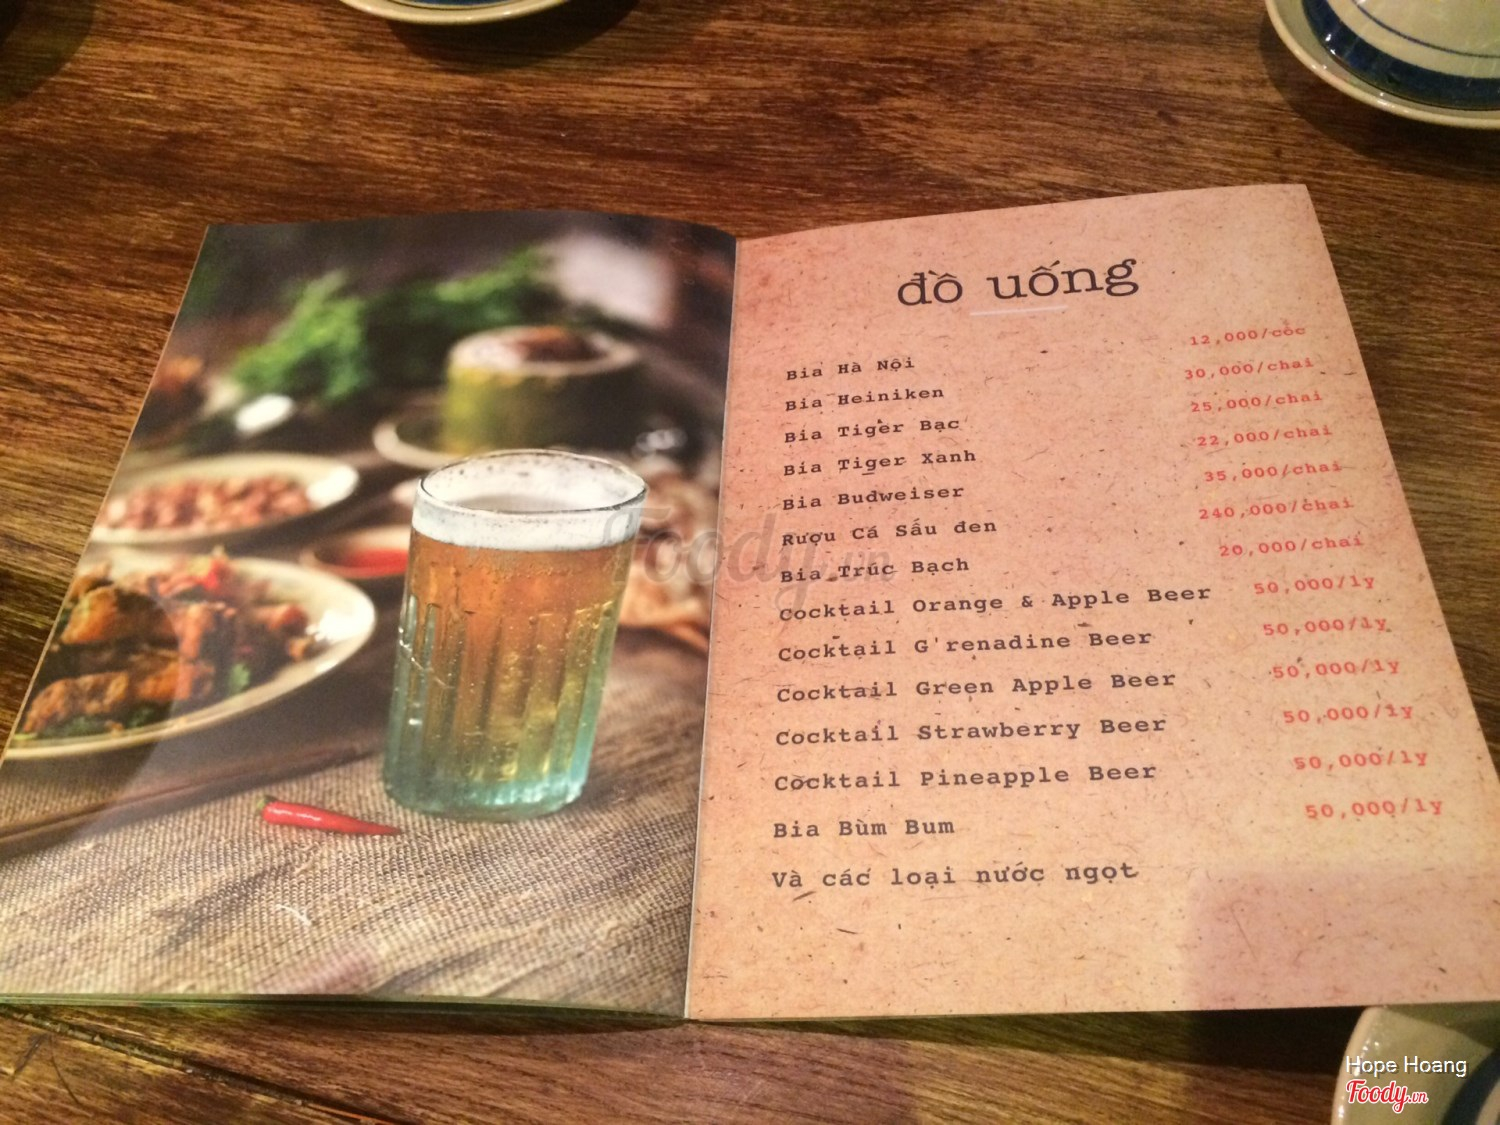 đồ uống
Bia Hà Nội 12,000/cốc
Bia Heiniken 30,000/chai
Bia Tiger Bạc 25,000/chai
Bia Tiger Xanh 22,000/chai
Bia Budweiser 35,000/chai
Rượu Cá Sấu đen 240,000/chai
Bia Trúc Bạch 20,000/chai
Cocktail Orange & Apple Beer 50,000/ly
Cocktail G'renadine Beer 50,000/ly
Cocktail Green Apple Beer 50,000/ly
Cocktail Strawberry Beer 50,000/ly
Cocktail Pineapple Beer 50,000/ly
Bia Bùm Bum 50,000/ly
Và các loại nước ngọt
Foody.vn
Hope Hoang
Foody.vn